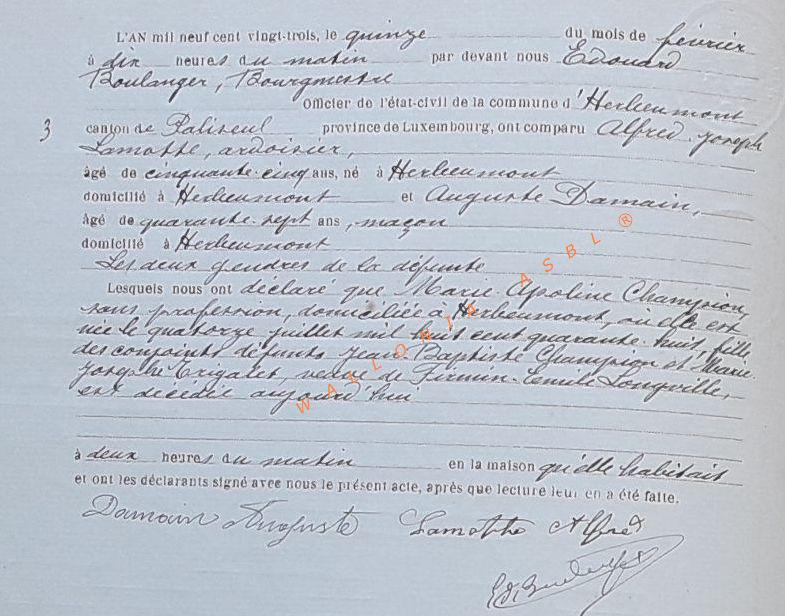 L'AN mil neuf cent vingt-trois, le quinze du mois de février
à dix heures du matin par devant nous Edouard
Boulanger, Bourgmestre
Officier de l'état-civil de la commune d'Herbeumont
3 canton de Paliseul province de Luxembourg, ont comparu Alfred Joseph
Lamotte, ardoisier,
âgé de cinquante-cinq ans, né à Herbeumont
domicilié à Herbeumont et Auguste Damain,
âgé de quarante-sept ans, maçon
domicilié à Herbeumont
Les deux gendres de la défunte
Lesquels nous ont déclaré que Marie Apoline Champion,
sans profession, domiciliée à Herbeumont, où elle est
née le quatorze juillet mil huit cent quarante-huit, fille
des conjoints défunts Jean Baptiste Champion et Marie
Josephe Trigalet, veuve de Firmin-Emile Longville,
est décédée aujourd'hui
à deux heures du matin en la maison qu'elle habitait
et ont les déclarants signé avec nous le présent acte, après que lecture leur en a été faite.
Damain Auguste Lamotte Alfred
WALLONIA ASBL ®